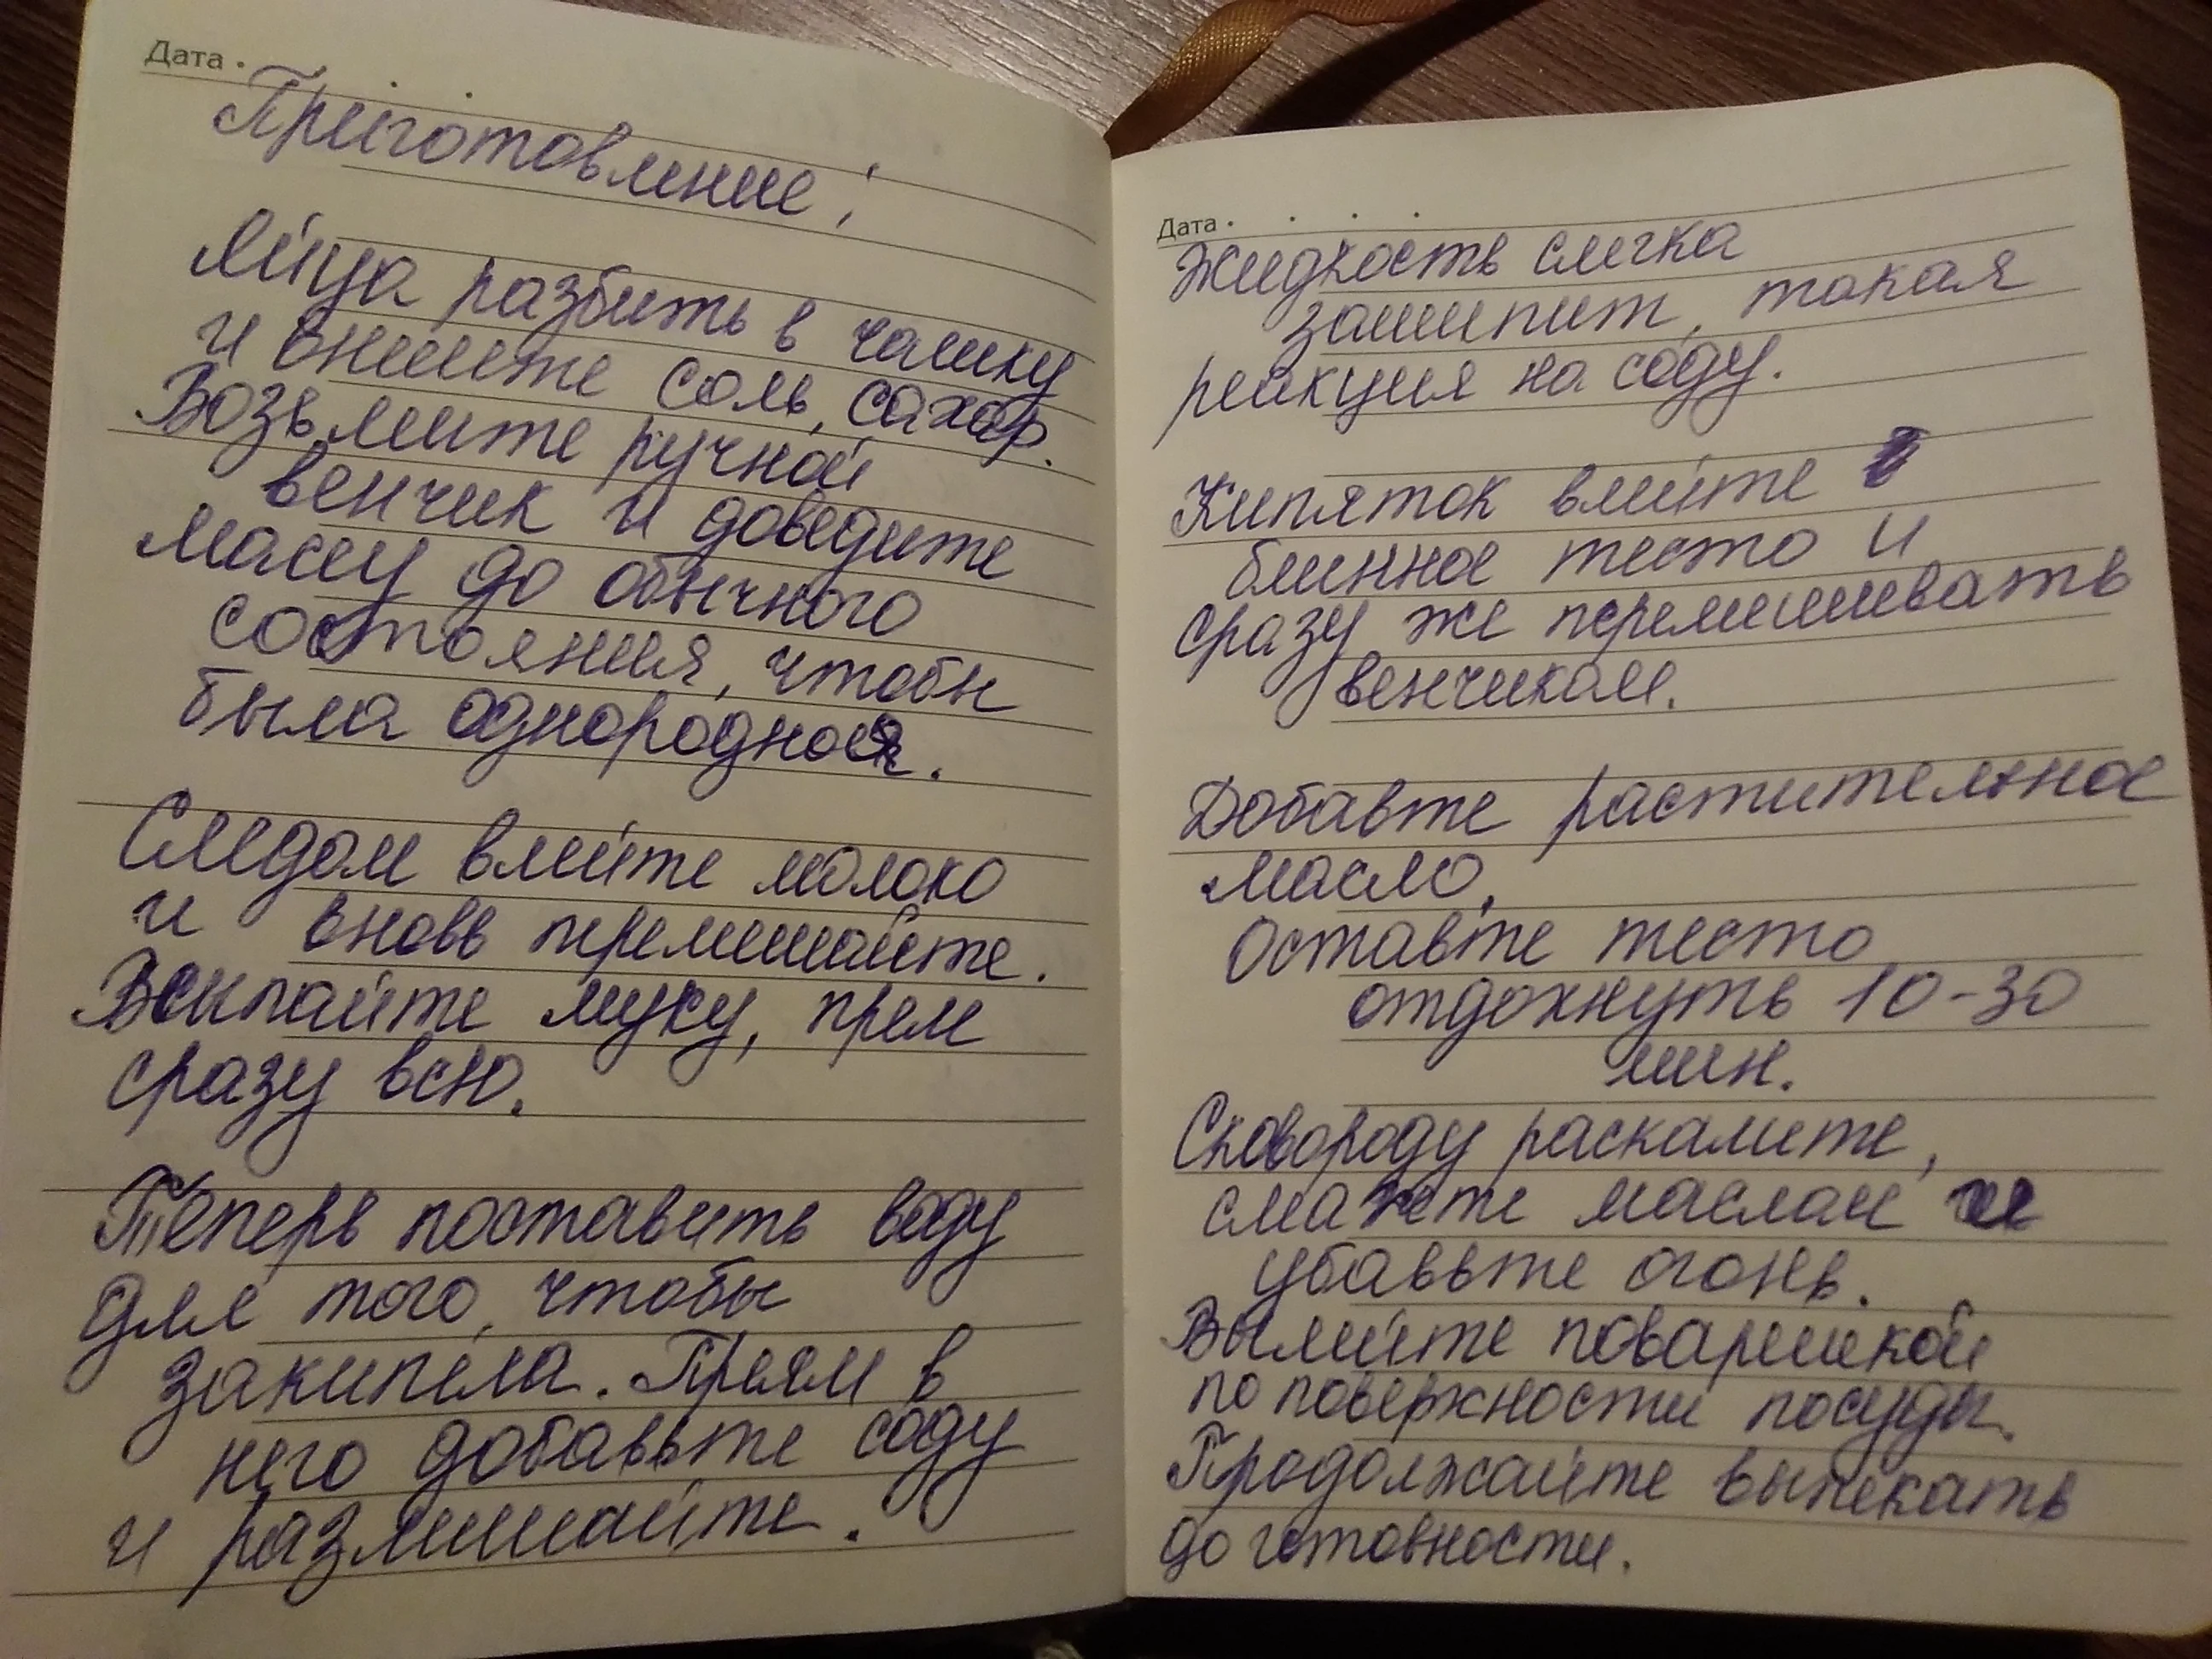 Дата
Приготовление:
Яйца разбить в чашку
и внишите соль, сахар.
Возьмите ручной
венчик и доведите
массу до обычного
состояния, чтобы
была однородная.
Следом влейте молоко
и вновь перемешайте.
Всыпайте муку, прям
сразу всю.
Теперь поставить воду
для того, чтобы
закипела. Прям в
него добавьте соду
и размешайте.
Дата
Жидкость слегка
зашипит, такая
реакция на соду.
Кипяток влейте в
блинное тесто и
сразу же перемешивать
венчиком.
Добавте растительное
масло.
Оставте тесто
отдохнуть 10-30
мин.
Сковороду раскалите,
смажте маслом и
убавьте огонь.
Вылейте поварешкой
по поверхности посуды.
Продолжайте выпекать
до готовности.